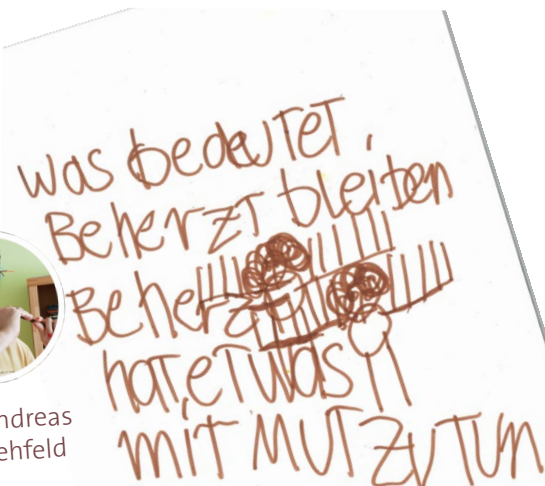 was bedeutet,
Beherzt bleiben
Beherzt
hat,etwas
mit MUT ZUTUN
ndreas
ehfeld